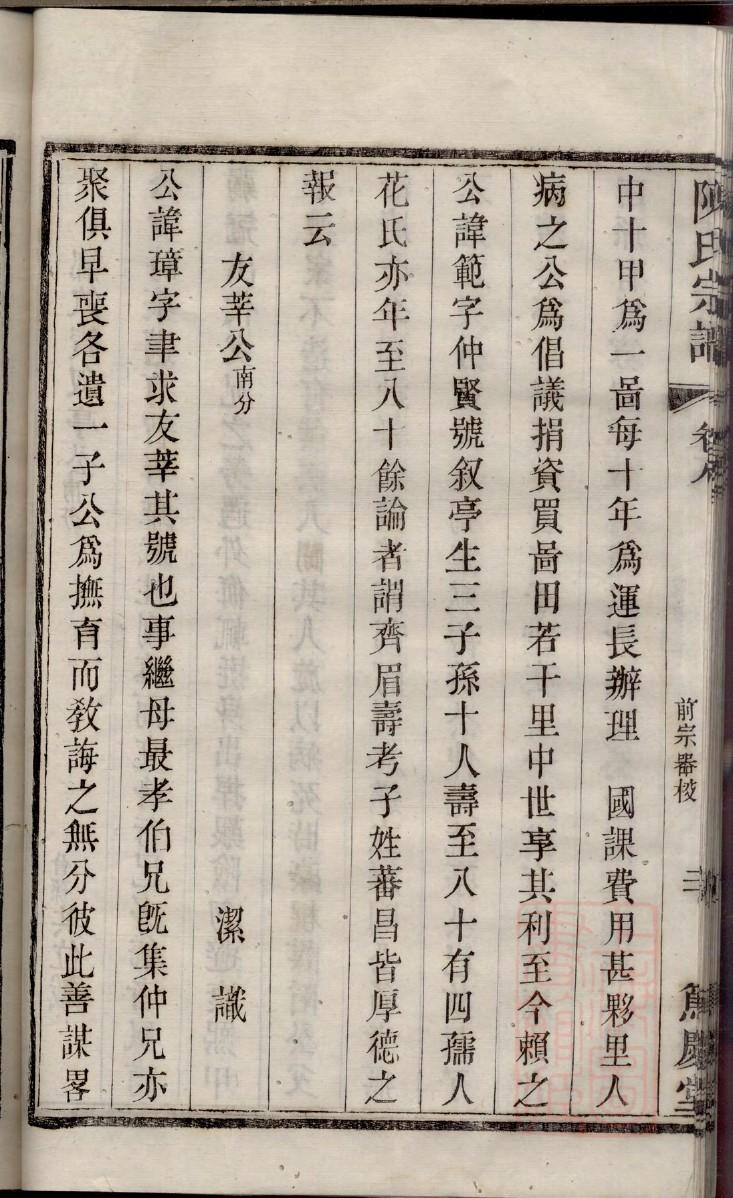 陳氏宗譜 卷八 前宗畚梭 二 篤慶堂
中十甲爲一啚每十年爲運長辦理　國課費用甚夥里人
病之公爲倡議捐資買啚田若干里中世享其利至今賴之
公諱範字仲賢號叙亭生三子孫十人壽至八十有四孺人
花氏亦年至八十餘論者謂齊眉壽考子姓蕃昌皆厚德之
報云
友莘公南分　潔　識
公諱璋字聿求友莘其號也事繼母最孝伯兄旣集仲兄亦
聚俱早喪各遺一子公爲撫育而敎誨之無分彼此善謀畧